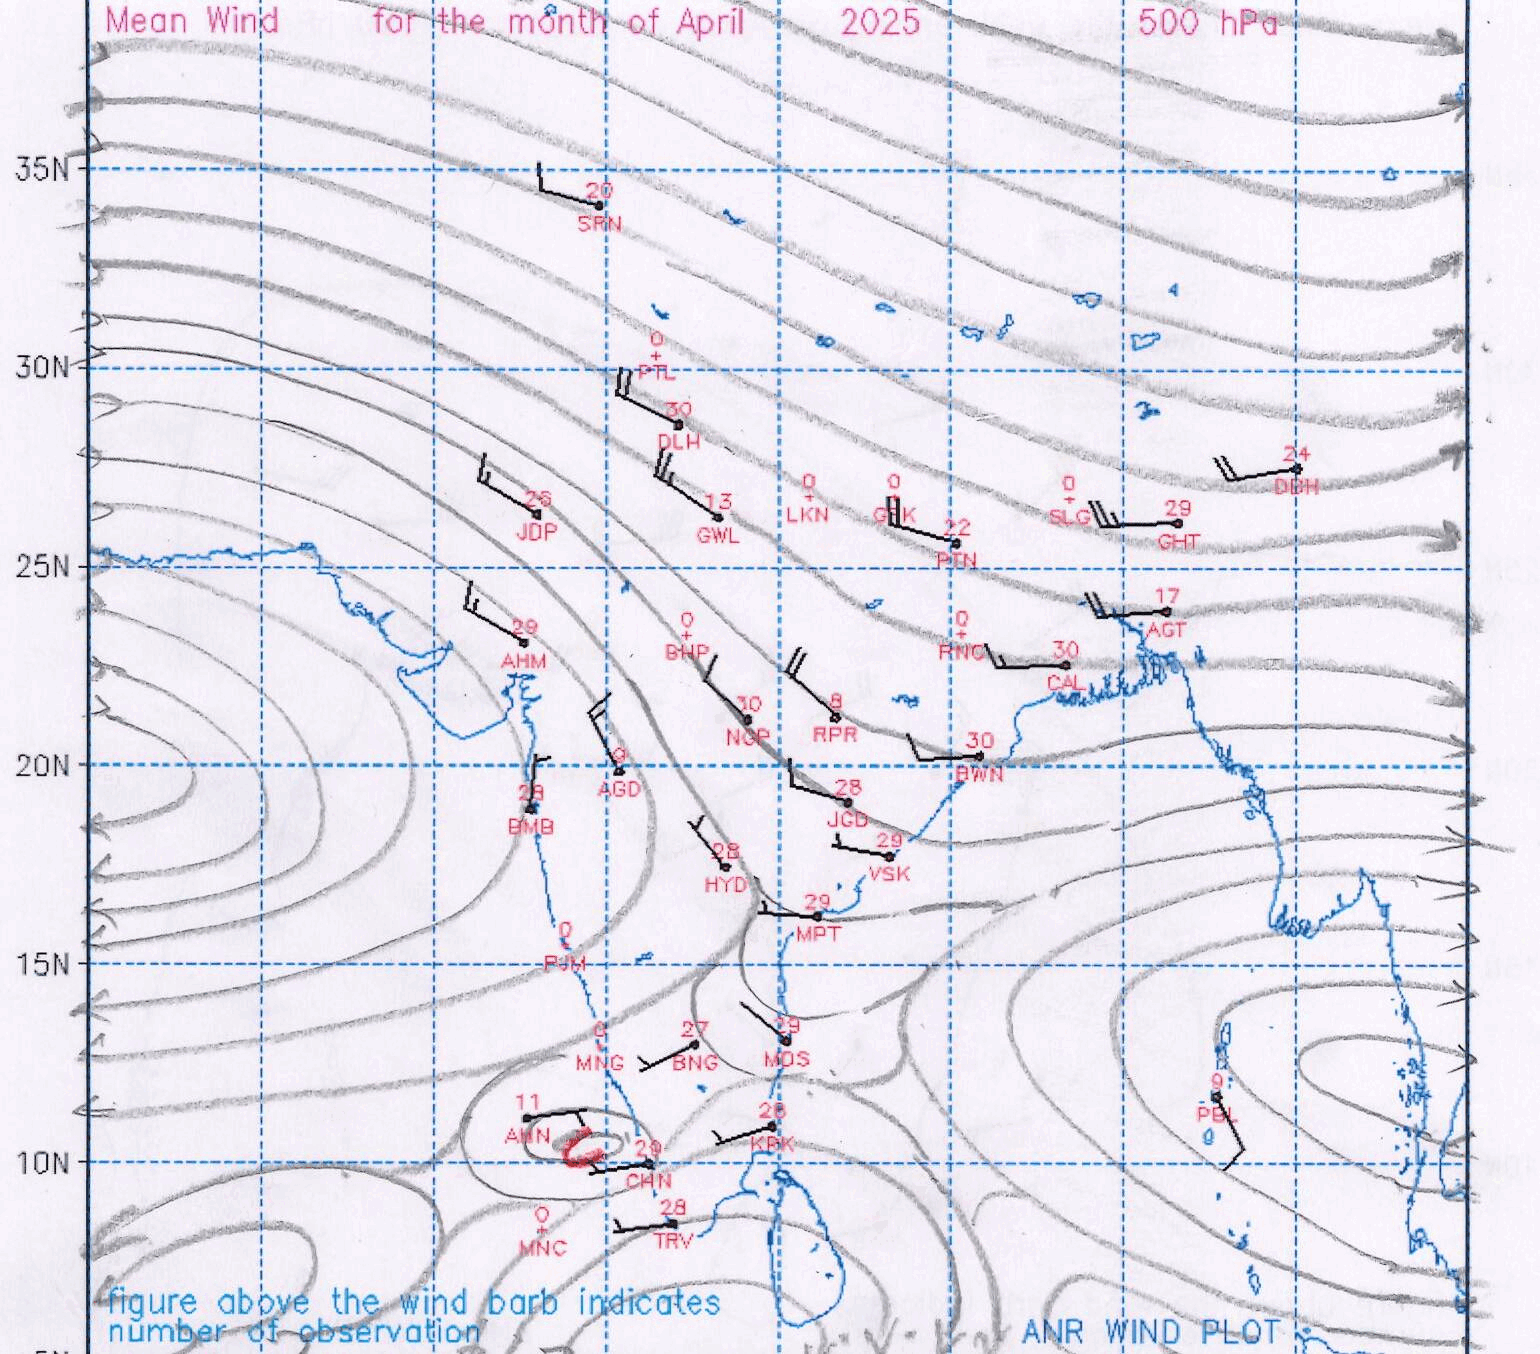 Mean Wind for the month of April 2025 500 hPa
35N
20
SRN
30N
0
PTL
30
DLH
24
26
JDP
13
GWL
0
LKN
0
22
PTN
0
SLG
29
GHT
25N
29
AHM
0
BHP
0
RNC
17
AGT
30
CAL
NGP
8
RPR
30
BWN
20N
9
AGD
BMB
28
JGD
28
HYD
29
VSK
29
MPT
0
PJM
15N
MNG
27
BNG
MDS
11
28
KRK
9
PBL
10N
29
CHN
0
MNC
28
TRV
figure above the wind barb indicates
number of observation
ANR WIND PLOT